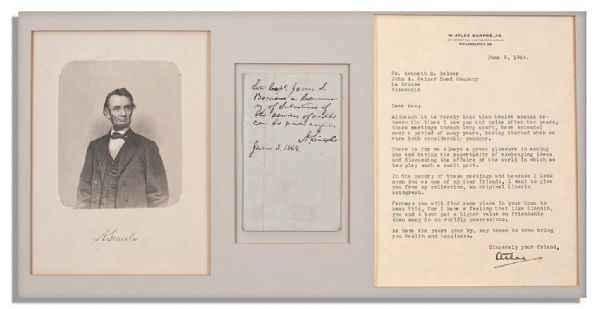 A. Lincoln
Let Capt. James S.
of Subsistence
A. Lincoln
1864.
W. ATLEE BURPEE, JR.
PHILADELPHIA
June 9, 1944.
Mr. Kenneth R. Salzer
John A. Salzer Seed Company
La Crosse
Wisconsin
Dear Ken:
Although it is rarely less than twelve months be-
tween the times I see you and quite often two years,
these meetings though long apart, have extended
over a period of many years, having started when we
were both considerably younger.
There is for me always a great pleasure in seeing
you and having the opportunity of exchanging ideas
and discussing the affairs of the world in which we
two play such a small part.
In the memory of these meetings and because I look
upon you as one of my dear friends, I want to give
you from my collection, an original Lincoln
autograph.
Perhaps you will find some place in your home to
keep this, for I have a feeling that like Lincoln,
you and I both put a higher value on friendship
than many do on worldly possessions.
As have the years gone by, may those to come bring
you health and happiness.
Sincerely your friend,
Atlee